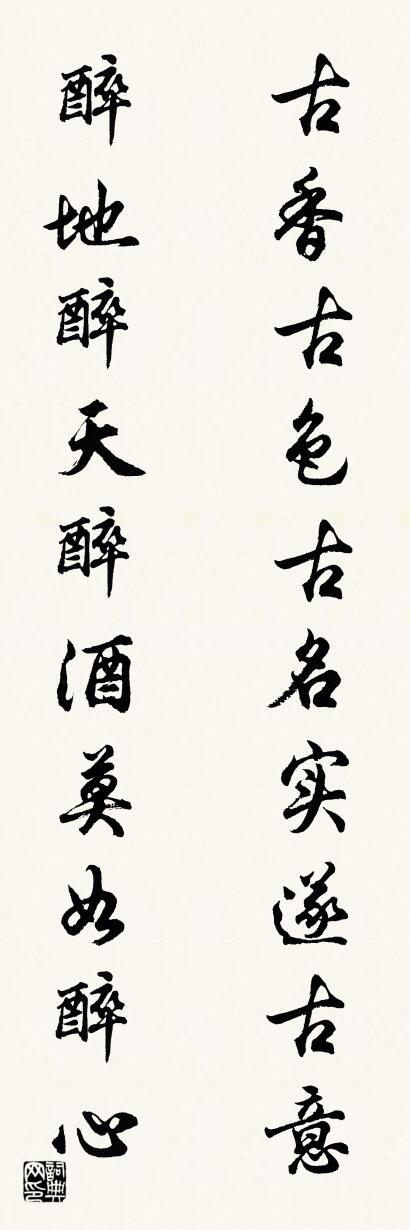 古香古色古名实遂古意
醉地醉天醉酒莫如醉心
词典网印